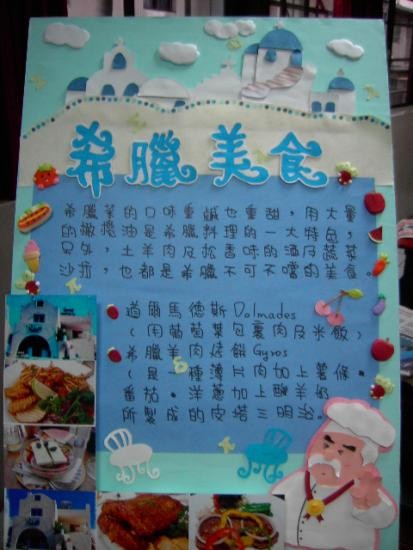 希臘美食
希臘菜的口味重鹹也重甜，用大量
的橄欖油是希臘料理的一大特色，
另外，土羊肉及松香味的酒及蔬菜
沙拉，也都是希臘不可不嚐的美食
道爾馬德斯Dolmades
(用葡萄葉包裹肉及米飯)
希臘羊肉烤餅Gyros
(是一種薄片肉加上薯條。
番茄。洋蔥加上酸羊奶
所製成的皮塔三明治。